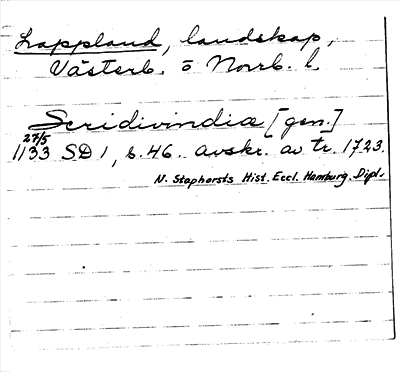 Lappland, landskap,
Västerb. o Norrb. l.
Scridivindiæ [gen.]
27/5
1133 SD 1, s. 46. avskr. av tr. 1723.
N. Staphorsts Hist. Eccl. Hamburg. Dipl.